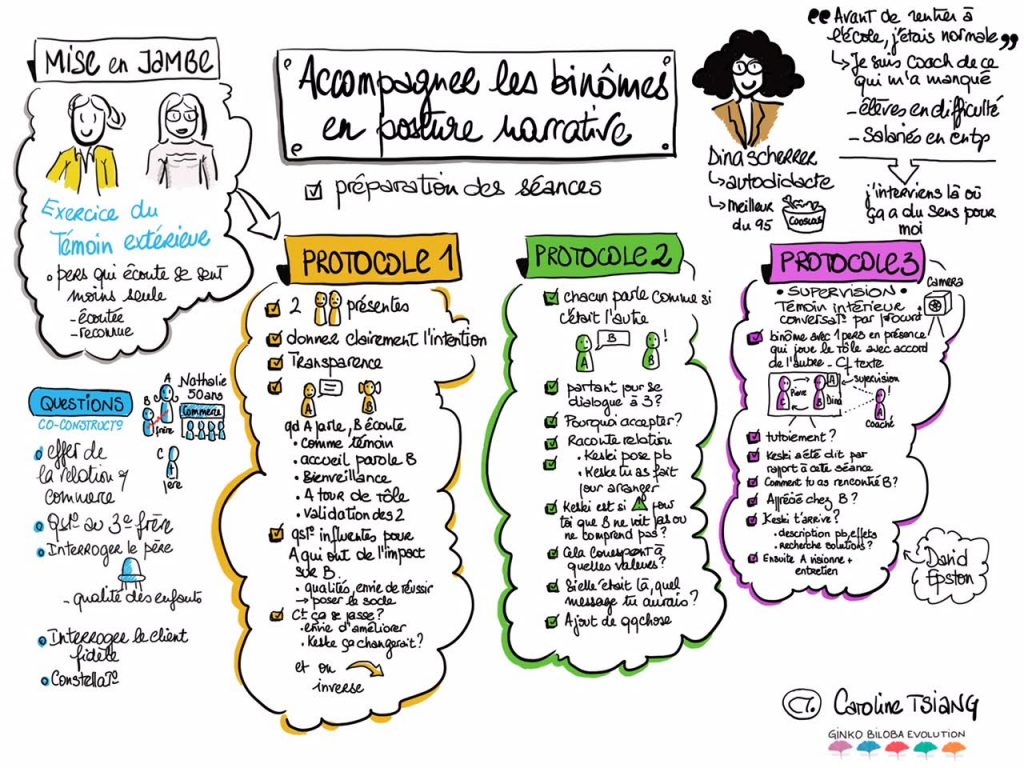 Mise en Jambe
Exercice du
Témoin extérieur
• pers qui écoute se sent
moins seule
- écoutée
- reconnue
Accompagner les binômes
en posture narrative
préparation des séances
Dina Scherrer
↳ autodidacte
↳ meilleur
du 95
Couscous
"Avant de rentrer à
l'école, j'étais normale"
↳ Je suis coach de ce
qui m'a manqué
- élèves en difficulté
- Salariés en entp
j'interviens là où
ça a du sens pour
moi
QUESTIONS
CO-CONSTRUCT°
A
B
frère
Nathalie
50 ans
Commerce
C
père
• effet de
la relation
commerce
• Qst° au 3e frère
• Interroger le père
- qualité des enfants
• Interroger le client
fidèle
• Constellat°
PROTOCOLE 1
2 présentes
donner clairement l'intention
Transparence
A B
qd A parle, B écoute
• comme témoin
• accueil parole B
• Bienveillance
• A tour de rôle
• validation des 2
qst° influentes pour
A qui ont de l'impact
sur B.
• qualités, envie de réussir
→ poser le socle
Ct ça se passe?
• envie d'améliorer
• Keske ça changerait?
et on
inverse
PROTOCOLE 2
chacun parle comme si
c'était l'autre
A B B !
partant pour se
dialogue à 3?
Pourquoi accepter?
Raconte relation
• Keski pose pb
• Keske tu as fait
pour arranger
Keski est si pour
toi que B ne voit pas ou
ne comprend pas?
Cela correspont à
quelles valeurs?
Si elle était là, quel
message tu aurais?
Ajout de qqchose
PROTOCOLE 3
• SUPERVISION •
Témoin intérieur
conversat° par procurat°
Camera
binôme avec 1 pers en présence
qui joue le rôle avec accord
de l'autre - Cf texte
Pierre
B
Dina
A
supervision
A
Coaché
tutoiement?
Keski a été dit par
rapport à cette séance
Comment tu as rencontré B?
Apprécié chez B?
Keski t'arrive?
• description pb, effets
• recherche solutions?
Ensuite A visionne +
entretien
David
Epston
CT. Caroline TSIANG
GINKO BILOBA EVOLUTION